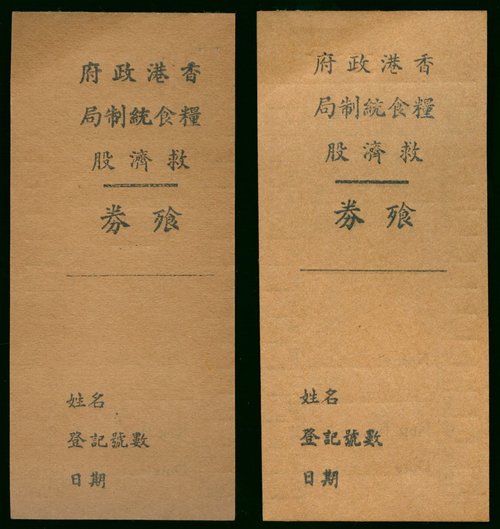 香港政府
糧食統制局
救濟股
飱券
姓名
登記號數
日期
香港政府
糧食統制局
救濟股
飱券
姓名
登記號數
日期